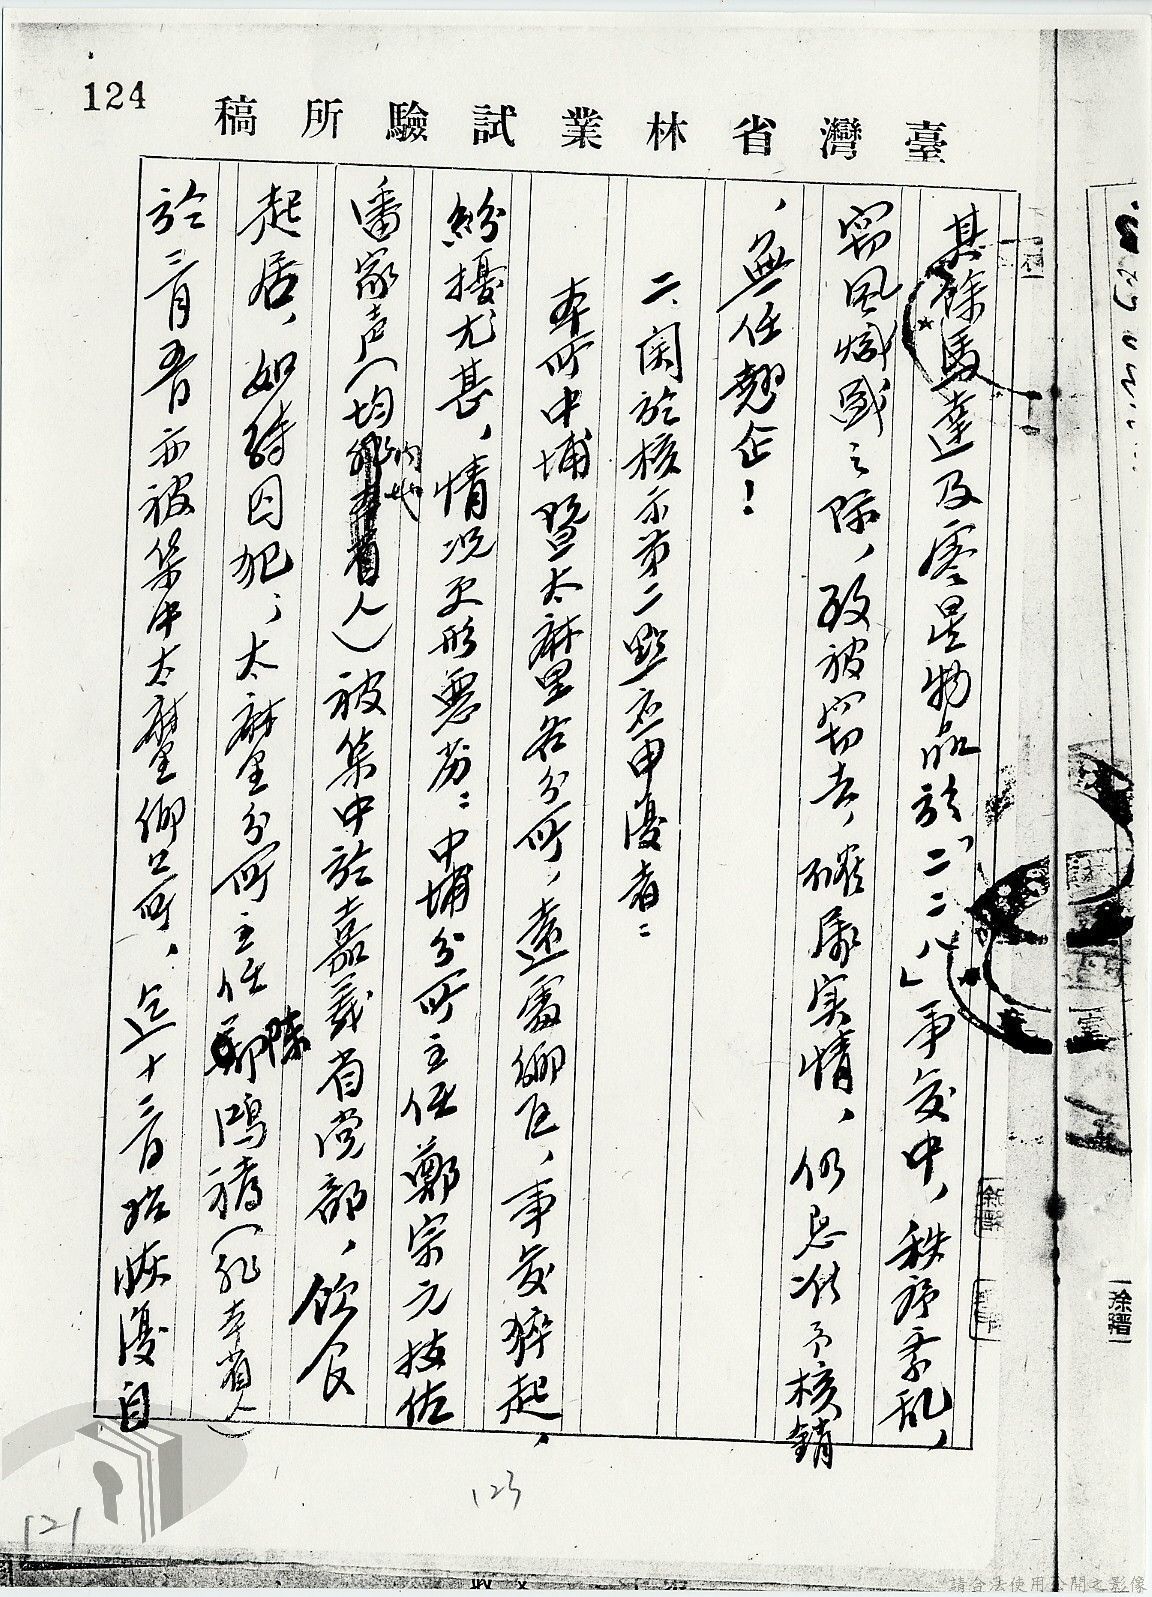 124
臺灣省林業試驗所稿
其餘馬達及零星物品於「二二八」事變中，秩序紊乱，
窃風熾盛之际，致被窃去，確属实情，仍恳准予核銷
，無任翹企！
二、関於核示第二點应申復者：
本所中埔暨太麻里各分所，遠處僻区，事变猝起，
紛擾尤甚，情况更形惡劣：中埔分所主任鄭宗元技佐
潘家声（均內地人）被集中於嘉義省党部，飲食
起居，如待囚犯；太麻里分所主任陈鴻禧（非本省人）
於三月五日亦被集中太麻里鄉公所，迄十三日始恢復自
123
121
請合法使用公開之影像